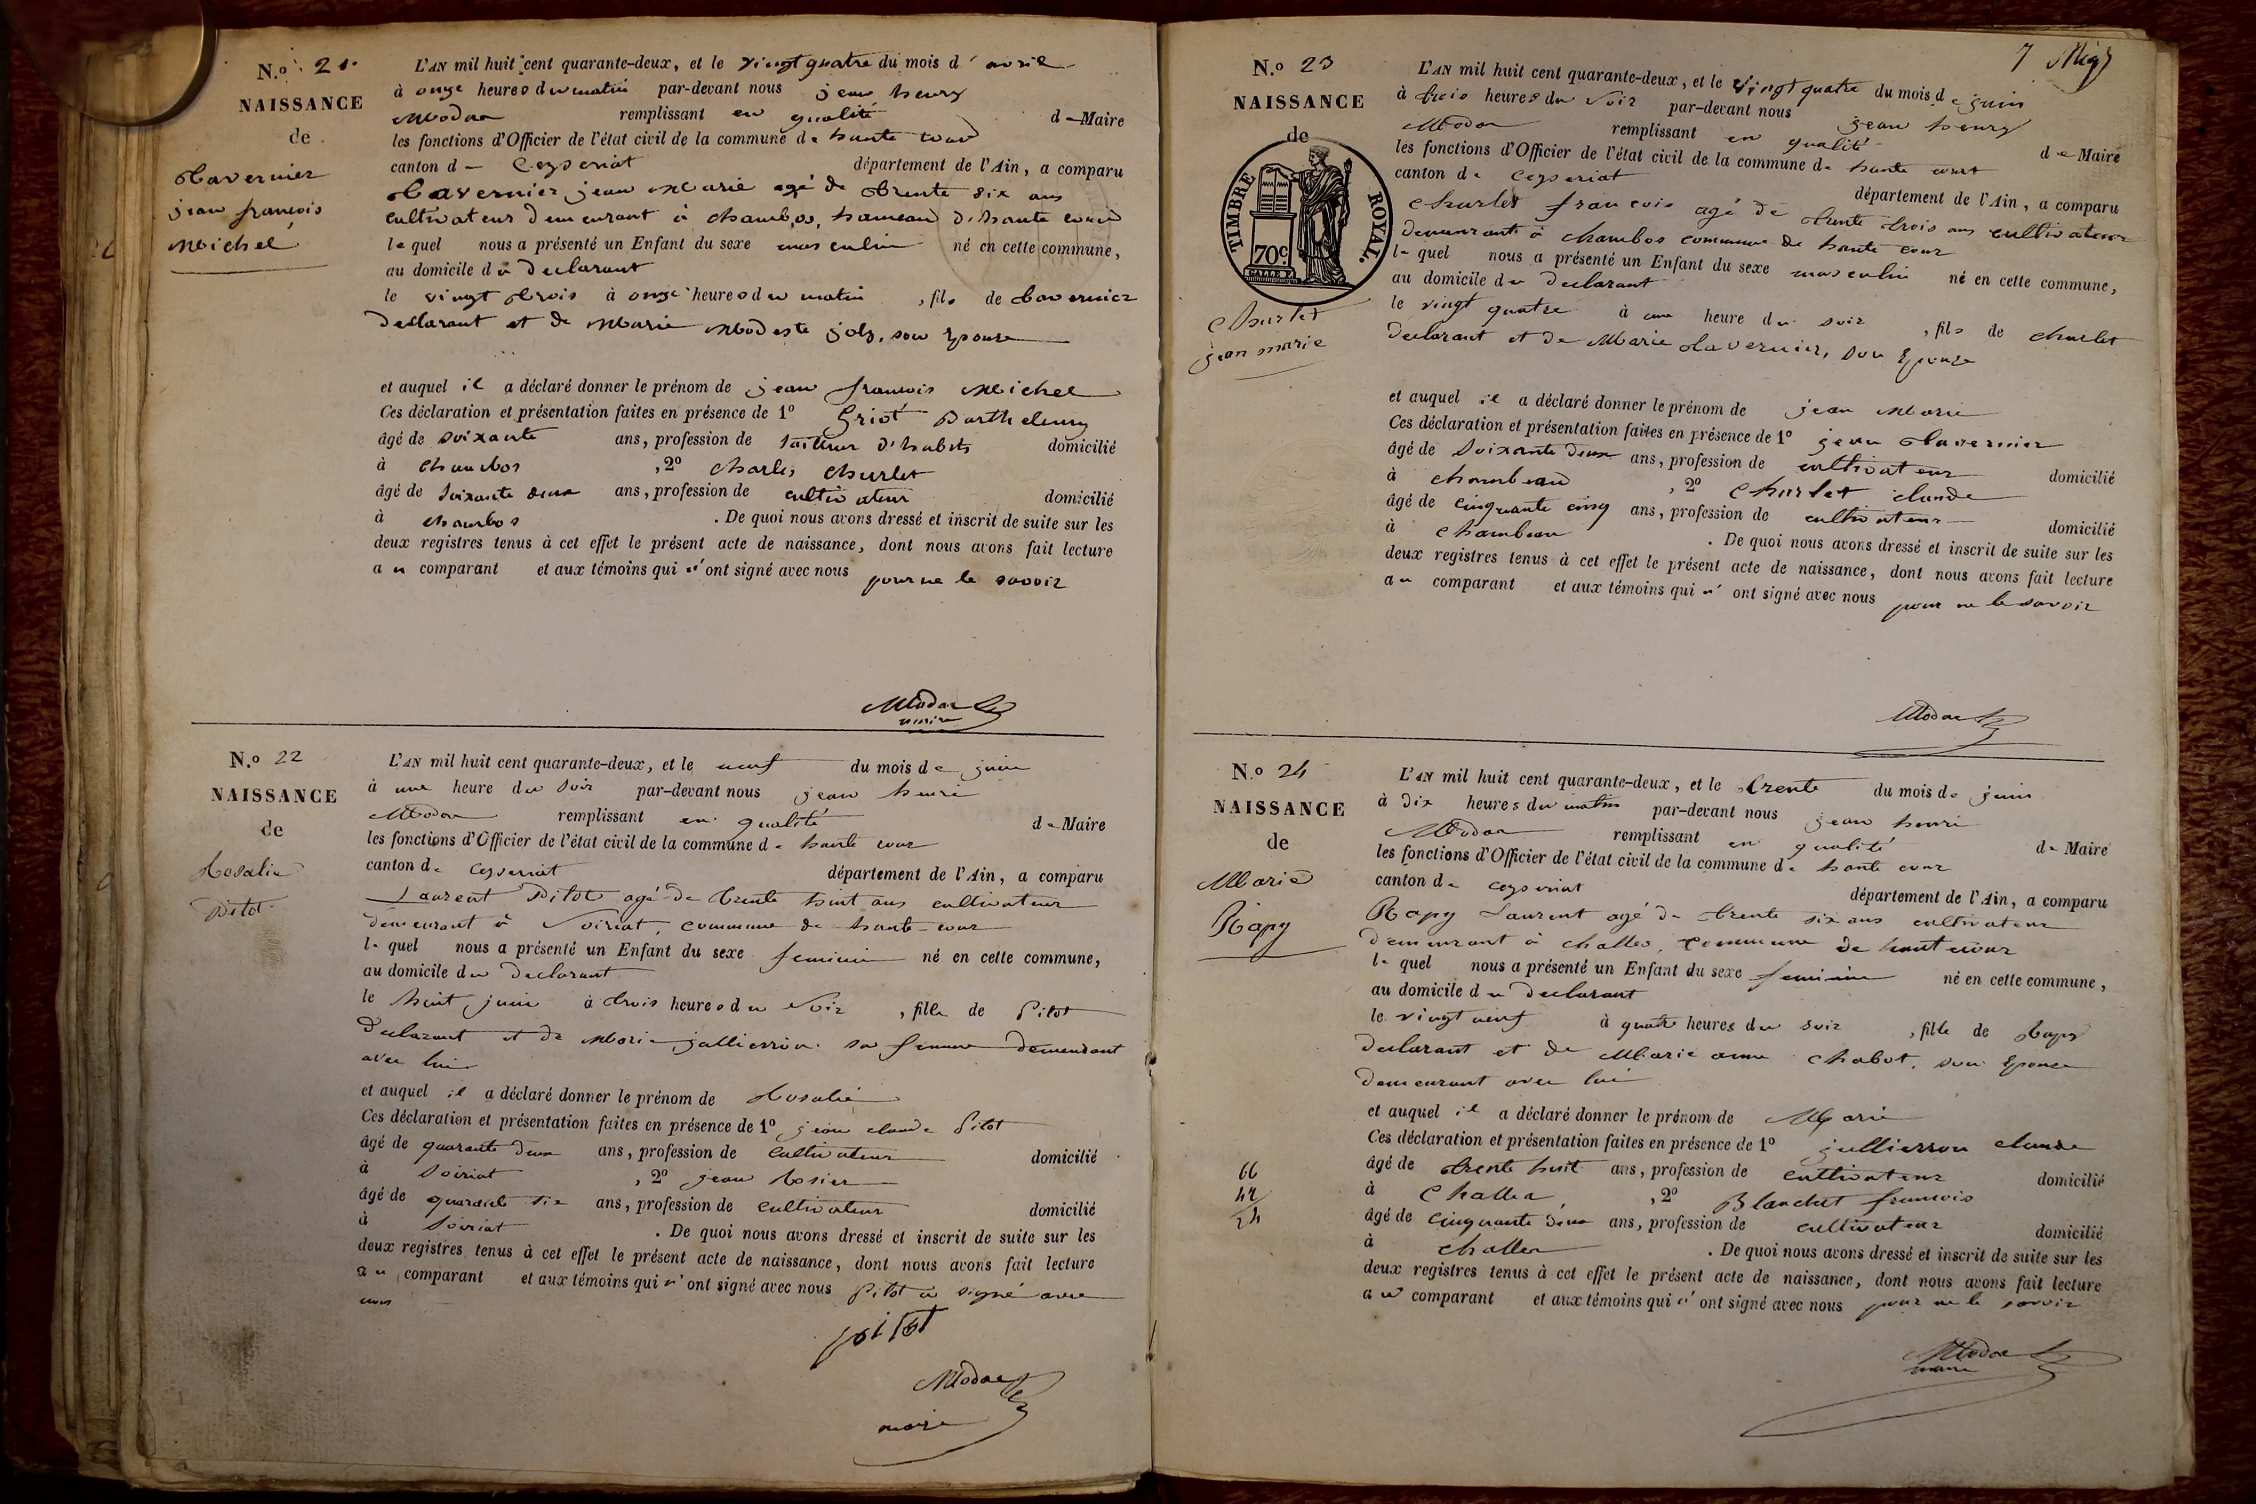 N.º 21.
NAISSANCE
de
Tavernier
jean françois
Michel
L'AN mil huit cent quarante-deux, et le vingt quatre du mois d'avril
à onze heures du matin par-devant nous jean henry
Modas remplissant en qualité de Maire
les fonctions d'Officier de l'état civil de la commune de haute cour
canton de Ceyzeriat département de l'Ain, a comparu
Tavernier jean Marie agé de trente six ans
cultivateur demeurant à chambos, hameau d'haute cour
lequel nous a présenté un Enfant du sexe masculin né en cette commune,
au domicile du declarant
le vingt trois à onze heures du matin, fils de tavernier
declarant et de Marie Modeste joly, son Epouse
et auquel il a déclaré donner le prénom de jean francois Michel
Ces déclaration et présentation faites en présence de 1º Griot Barthelemy
âgé de soixante ans, profession de tailleur d'habits domicilié
à chambos, 2º charles churlet
âgé de soixante deux ans, profession de cultivateur domicilié
à chambos. De quoi nous avons dressé et inscrit de suite sur les
deux registres tenus à cet effet le présent acte de naissance, dont nous avons fait lecture
au comparant et aux témoins qui n'ont signé avec nous pour ne le savoir
Modas
maire
N.º 22
NAISSANCE
de
Rosalie
Pitot
L'AN mil huit cent quarante-deux, et le neuf du mois de juin
à une heure du soir par-devant nous jean henri
Modas remplissant en qualité de Maire
les fonctions d'Officier de l'état civil de la commune de haute cour
canton de Ceyzeriat département de l'Ain, a comparu
Laurent Pitot agé de trente huit ans cultivateur
demeurant à Soiriat, commune de haute-cour
lequel nous a présenté un Enfant du sexe feminin né en cette commune,
au domicile du declarant
le huit juin à trois heures du soir, fille de Pitot
declarant et de Marie jullierron sa femme demeurant
avec lui
et auquel il a déclaré donner le prénom de Rosalie
Ces déclaration et présentation faites en présence de 1º jean claude Pitot
âgé de quarante deux ans, profession de cultivateur domicilié
à Soiriat, 2º jean Rosier
âgé de quarante six ans, profession de cultivateur domicilié
à Soiriat. De quoi nous avons dressé et inscrit de suite sur les
deux registres tenus à cet effet le présent acte de naissance, dont nous avons fait lecture
au comparant et aux témoins qui n'ont signé avec nous Pitot a signé avec
nous
pitot
Modas
maire
7
N.º 23
NAISSANCE
de
TIMBRE ROYAL.
70c.
churlet
jean marie
L'AN mil huit cent quarante-deux, et le vingt quatre du mois de juin
à trois heures du soir par-devant nous jean henry
Modas remplissant en qualité de Maire
les fonctions d'Officier de l'état civil de la commune de haute court
canton de Ceyzeriat département de l'Ain, a comparu
churlet francois agé de trente trois ans cultivateur
demeurant à chambos commune de haute cour
lequel nous a présenté un Enfant du sexe masculin né en cette commune,
au domicile du declarant
le vingt quatre à une heure du soir, fils de churlet
declarant et de Marie tavernier, son Epouse
et auquel il a déclaré donner le prénom de jean Marie
Ces déclaration et présentation faites en présence de 1º jean tavernier
âgé de soixante deux ans, profession de cultivateur domicilié
à chambeau, 2º churlet claude
âgé de cinquante cinq ans, profession de cultivateur domicilié
à chambeau. De quoi nous avons dressé et inscrit de suite sur les
deux registres tenus à cet effet le présent acte de naissance, dont nous avons fait lecture
au comparant et aux témoins qui n'ont signé avec nous pour ne le savoir
Modas
N.º 24
NAISSANCE
de
Marie
Rapy
L'AN mil huit cent quarante-deux, et le trente du mois de juin
à dix heures du matin par-devant nous jean henri
Modas remplissant en qualité de Maire
les fonctions d'Officier de l'état civil de la commune de haute cour
canton de Ceyzeriat département de l'Ain, a comparu
Rapy Laurent agé de trente six ans cultivateur
demeurant à challes, commune de hautecour
lequel nous a présenté un Enfant du sexe feminin né en cette commune,
au domicile du declarant
le vingt neuf à quatre heures du soir, fille de Rapy
declarant et de Marie anne chabot, son Epouse
demeurant avec lui
et auquel il a déclaré donner le prénom de Marie
Ces déclaration et présentation faites en présence de 1º jullierron claude
âgé de trente huit ans, profession de cultivateur domicilié
à challea, 2º Blanchet francois
âgé de cinquante deux ans, profession de cultivateur domicilié
à challea. De quoi nous avons dressé et inscrit de suite sur les
deux registres tenus à cet effet le présent acte de naissance, dont nous avons fait lecture
au comparant et aux témoins qui n'ont signé avec nous pour ne le savoir
66
42
24
Modas
maire